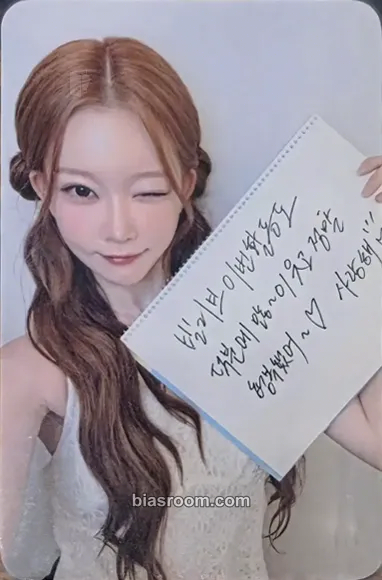 빌리브 이번활동도
덕분에 많~이 웃고 정말
행복했어~♡ 사랑해
biasroom.com